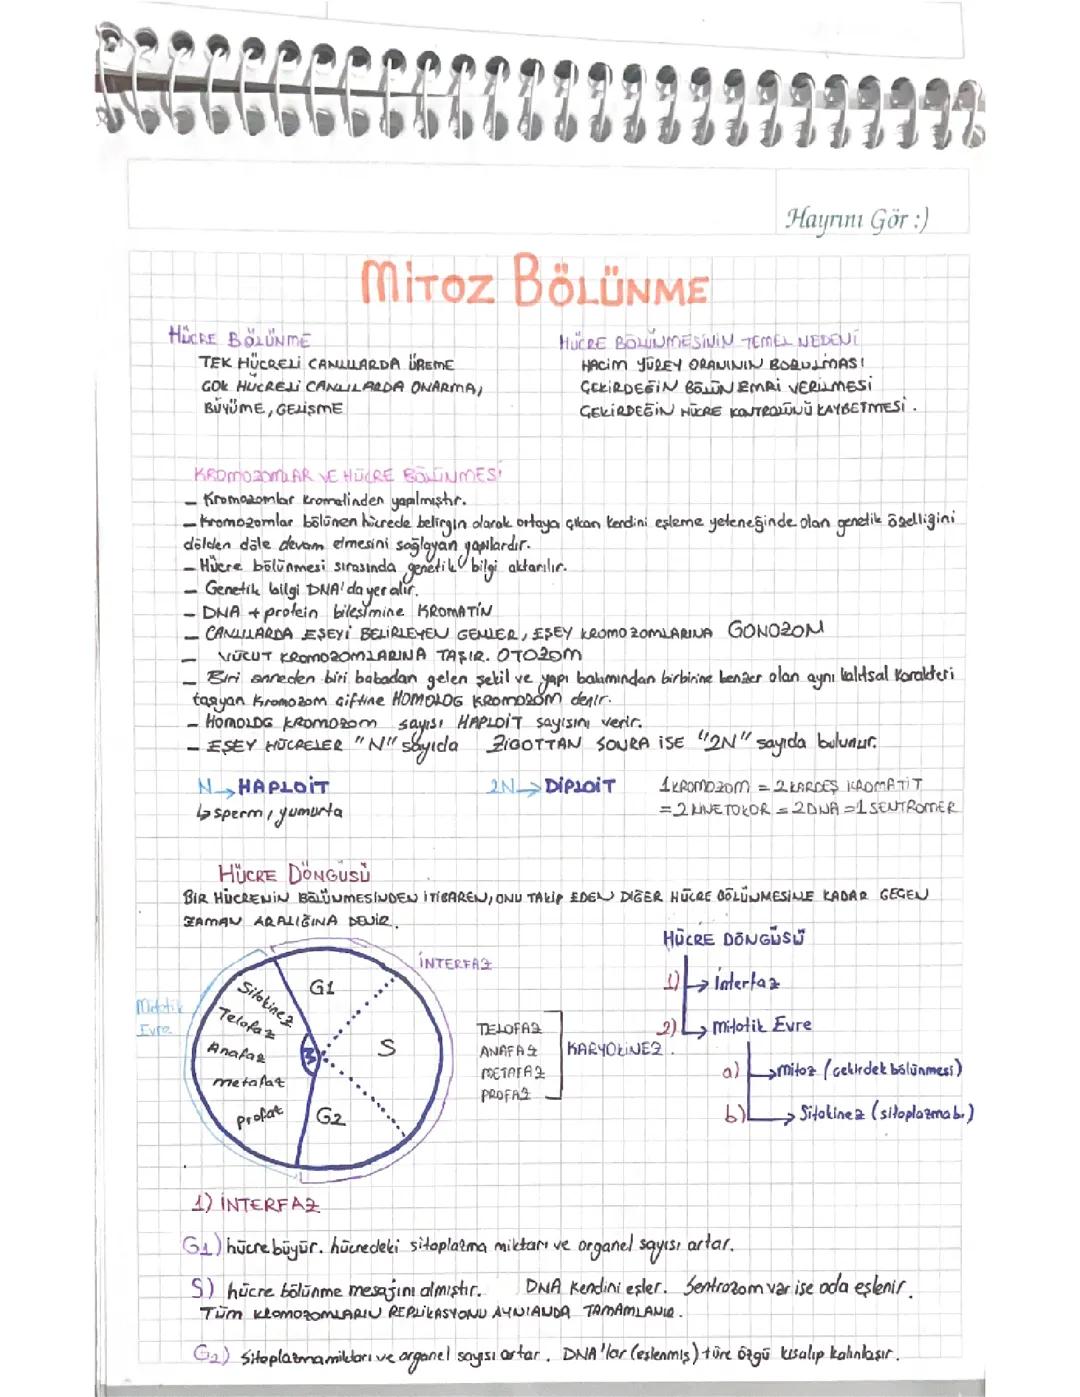 Hayrını Gör :)
MİTOZ BÖLÜNME
HÜCRE BÖLÜNME
TEK HÜCRELİ CANLILARDA ÜREME
ÇOK HÜCRELİ CANLILARDA ONARMA,
BÜYÜME, GELİŞME
HÜCRE BÖLÜNMESİNİN TEMEL NEDENİ
HACİM YÜZEY ORANININ BOZULMASI
ÇEKİRDEĞİN BÖLÜN EMRİ VERİLMESİ
ÇEKİRDEĞİN HÜCRE KONTROLÜNÜ KAYBETMESİ.
KROMOZOMLAR VE HÜCRE BÖLÜNMESİ
- Kromozomlar kromatinden yapılmıştır.
- Kromozomlar bölünen hücrede belirgin olarak ortaya çıkan kendini eşleme yeteneğinde olan genetik özelliğini
dölden döle devam etmesini sağlayan yapılardır.
- Hücre bölünmesi sırasında genetik bilgi aktarılır.
- Genetik bilgi DNA'da yer alır.
- DNA + protein bileşimine KROMATİN
- CANLILARDA EŞEYİ BELİRLEYEN GENLER, EŞEY KROMOZOMLARINA GONOZOM
- VÜCUT KROMOZOMLARINA TAŞIR. OTOZOM
- Biri anneden biri babadan gelen şekil ve yapı bakımından birbirine benzer olan aynı kalıtsal karakteri
taşıyan kromozom çiftine HOMOLOG KROMOZOM denir.
- HOMOLOG KROMOZOM sayısı HAPLOİT sayısını verir.
- EŞEY HÜCRELER "N" sayıda ZİGOTTAN SONRA İSE "2N" sayıda bulunur.
N → HAPLOİT
↳ sperm, yumurta
2N → DİPLOİT
1 KROMOZOM = 2 KARDEŞ KROMATİT
= 2 KİNETOKOR = 2 DNA = 1 SENTROMER
HÜCRE DÖNGÜSÜ
BİR HÜCRENİN BÖLÜNMESİNDEN İTİBAREN, ONU TAKİP EDEN DİĞER HÜCRE BÖLÜNMESİNE KADAR GEÇEN
ZAMAN ARALIĞINA DENİR.
İNTERFAZ
G1
S
G2
Mitotik
Evre
Sitokinez
Telofaz
Anafaz
metafaz
profaz
TELOFAZ
ANAFAZ
METAFAZ
PROFAZ
KARYOKİNEZ.
HÜCRE DÖNGÜSÜ
1) → interfaz
2) → mitotik Evre
a) → mitoz (çekirdek bölünmesi)
b) → Sitokinez (sitoplazma b.)
1) İNTERFAZ
G1) hücre büyür. hücredeki sitoplazma miktarı ve organel sayısı artar.
S) hücre bölünme mesajını almıştır. DNA kendini eşler. Sentrozom var ise oda eşlenir.
TÜM KROMOZOMLARIN REPLİKASYONU AYNI ANDA TAMAMLANIR.
G2) Sitoplazma miktarı ve organel sayısı artar. DNA'lar (eşlenmiş) türe özgü kısalıp kalınlaşır.